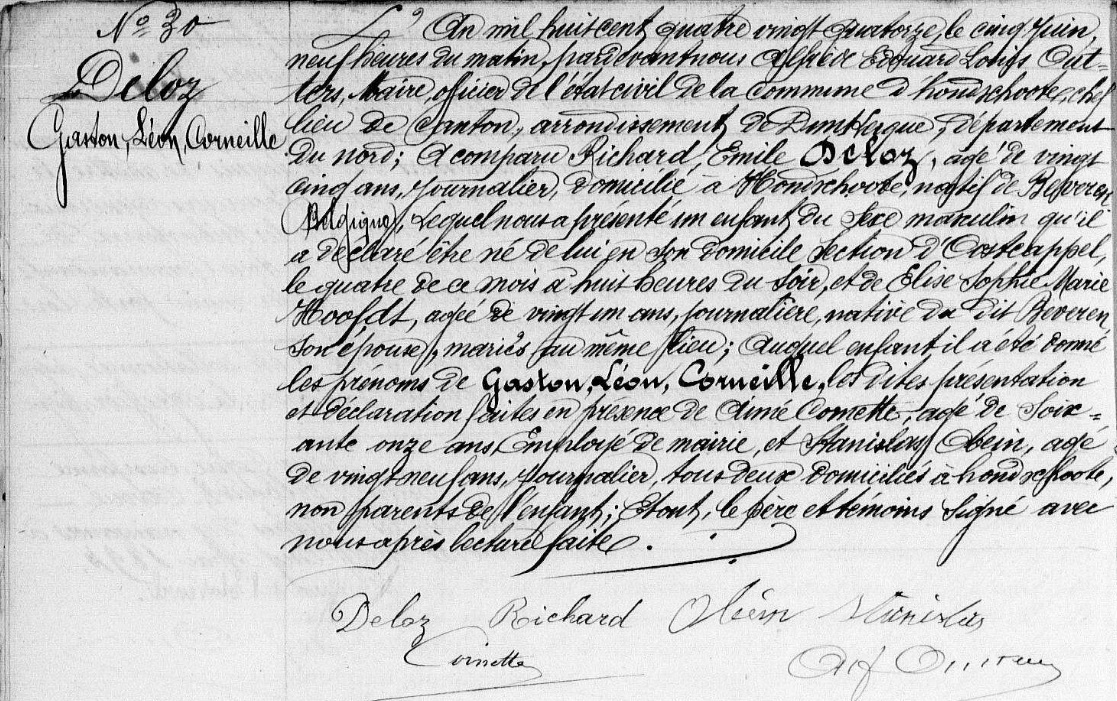 No 30
Deloz
Gaston, Léon, Corneille
L'An mil huit cent quatre vingt quatorze, le cinq Juin,
neuf heures du matin, par devant nous Alfred Edouard Louis Out=
ters, Maire, officier de l'état civil de la commune d'hondschoote, chef
lieu de Canton, arrondissement de Dunkerque, département
du nord; A comparu Richard, Emile Deloz, agé de vingt
cinq ans, Journalier, domicilié à Hondschoote, natif de Beveren
(Belgique), Lequel nous a présenté un enfant du Sexe masculin qu'il
a déclaré être né de lui en son domicile section d'Oostcappel,
le quatre de ce mois à huit heures du Soir, et de Elise Sophie Marie
Hoofdt, agée de vingt un ans, journalière, native du dit Beveren,
son épouse, mariés au même lieu; Auquel enfant il a été donné
les prénoms de Gaston, Léon, Corneille, les dites présentation
et déclaration faites en présence de Aimé Comette, agé de Soix=
ante onze ans Employé de mairie, et Stanislas Obein, agé
de vingt neuf ans, journalier, tous deux domiciliés à hondschoote,
non parents de l'enfant; Et ont, le père et témoins Signé avec
nous après lecture faite.
Deloz Richard Obein Stanislas
Comette